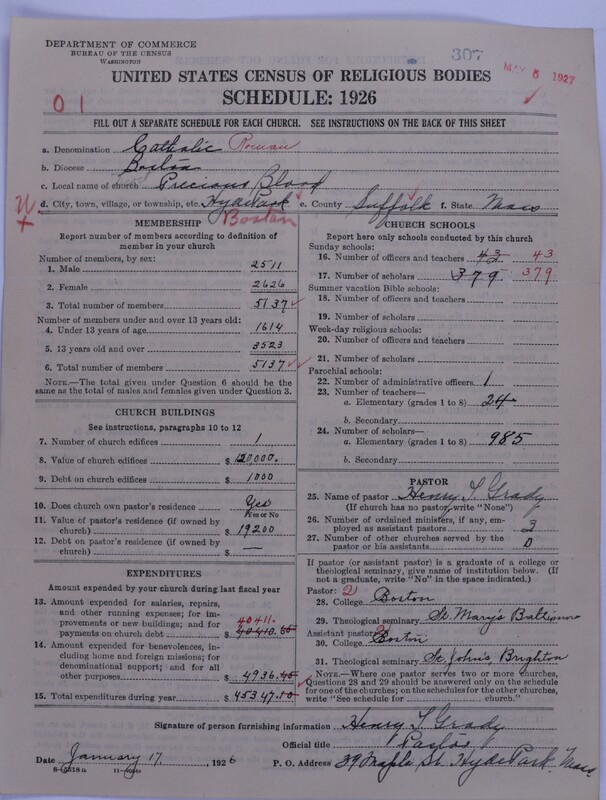 DEPARTMENT OF COMMERCE
BUREAU OF THE CENSUS
WASHINGTON
307
MAY 6 1927
UNITED STATES CENSUS OF RELIGIOUS BODIES
SCHEDULE: 1926
0 1
FILL OUT A SEPARATE SCHEDULE FOR EACH CHURCH. SEE INSTRUCTIONS ON THE BACK OF THIS SHEET
a. Denomination Catholic Roman
b. Diocese Boston
c. Local name of church Precious Blood
d. City, town, village, or township, etc. Hyde Park e. County Suffolk f. State Mass
Boston
MEMBERSHIP
Report number of members according to definition of
member in your church
Number of members, by sex:
1. Male 2511
2. Female 2626
3. Total number of members 5137
Number of members under and over 13 years old:
4. Under 13 years of age 1614
5. 13 years old and over 3523
6. Total number of members 5137
NOTE.—The total given under Question 6 should be the
same as the total of males and females given under Question 3.
CHURCH BUILDINGS
See instructions, paragraphs 10 to 12
7. Number of church edifices 1
8. Value of church edifices $ 120,000.
9. Debt on church edifices $ 1000
10. Does church own pastor's residence? Yes
Yes or No
11. Value of pastor's residence (if owned by
church) $ 19200
12. Debt on pastor's residence (if owned by
church) $ —
EXPENDITURES
Amount expended by your church during last fiscal year
13. Amount expended for salaries, repairs,
and other running expenses; for im-
provements or new buildings; and for 40411.
payments on church debt $ 40410.
14. Amount expended for benevolences,
including home and foreign missions; for
denominational support; and for all
other purposes $ 4936.45
15. Total expenditures during year $ 45347.10
CHURCH SCHOOLS
Report here only schools conducted by this church
Sunday schools:
16. Number of officers and teachers 43 43
17. Number of scholars 379 379
Summer vacation Bible schools:
18. Number of officers and teachers
19. Number of scholars
Week-day religious schools:
20. Number of officers and teachers
21. Number of scholars
Parochial schools:
22. Number of administrative officers 1
23. Number of teachers—
a. Elementary (grades 1 to 8) 24
b. Secondary
24. Number of scholars—
a. Elementary (grades 1 to 8) 985
b. Secondary
PASTOR
25. Name of pastor Henry T. Grady
(If church has no pastor, write "None")
26. Number of ordained ministers, if any, em-
ployed as assistant pastors 3
27. Number of other churches served by the
pastor or his assistants 0
If pastor (or assistant pastor) is a graduate of a college or
theological seminary, give name of institution below. (If
not a graduate, write "No" in the space indicated.)
Pastor: 2
28. College Boston
29. Theological seminary St. Mary's Baltimore
Assistant pastor:
30. College Boston
31. Theological seminary St. John's Brighton
NOTE.—Where one pastor serves two or more churches,
Questions 28 and 29 should be answered only on the schedule
for one of the churches; on the schedules for the other churches,
write "See schedule for church."
Signature of person furnishing information Henry T. Grady
Official title Pastor
Date January 17, 1926 P. O. Address 39 Maple St. Hyde Park. Mass